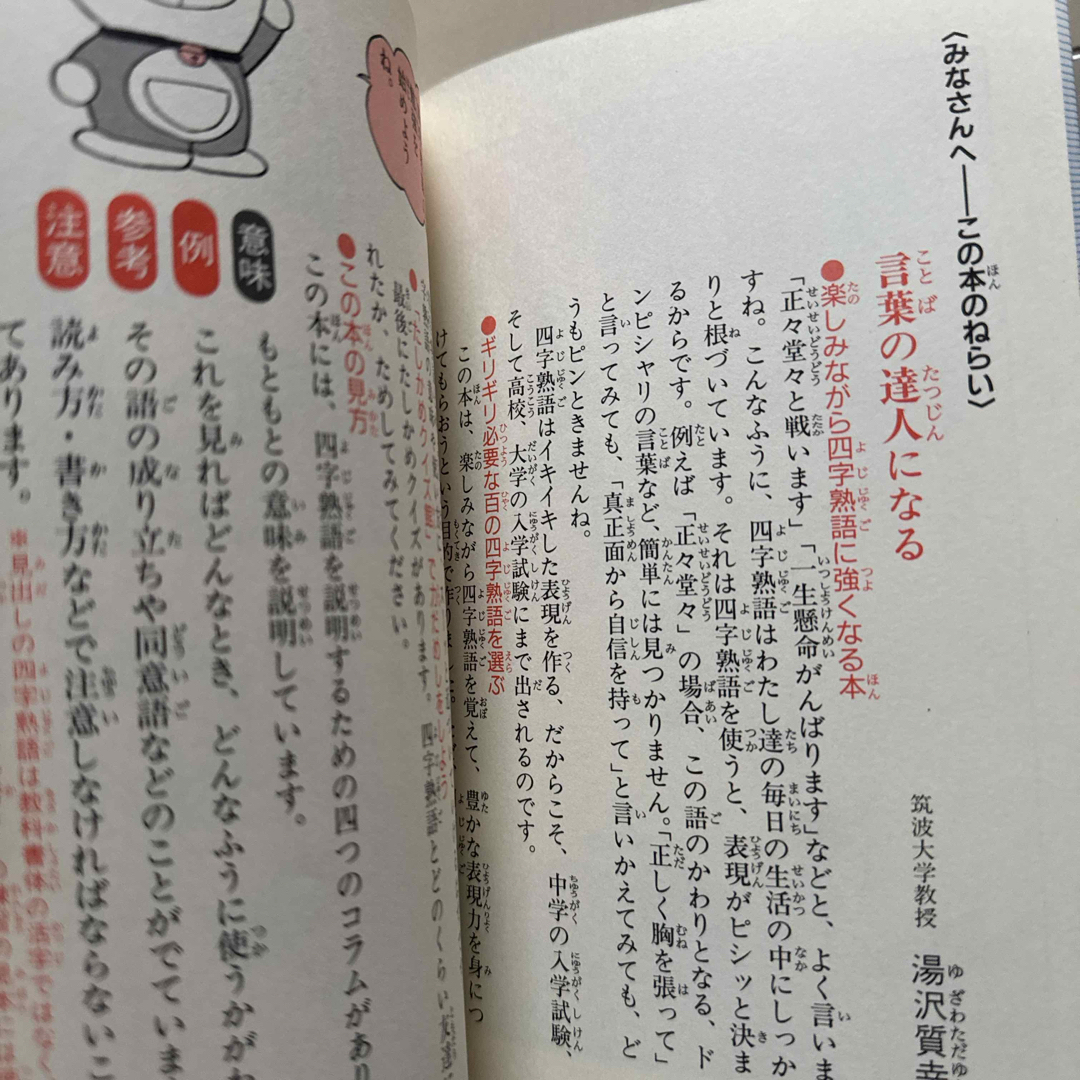 〈みなさんへ――この本のねらい〉
言葉の達人になる
筑波大学教授 湯沢質幸
●楽しみながら四字熟語に強くなる本
「正々堂々と戦います」「一生懸命がんばります」などと、よく言いま
すね。こんなふうに、四字熟語はわたし達の毎日の生活の中にしっか
りと根づいています。それは四字熟語を使うと、表現がピシッと決ま
るからです。例えば「正々堂々」の場合、この語のかわりとなる、ド
ンピシャリの言葉など、簡単には見つかりません。「正しく胸を張って」
と言ってみても、「真正面から自信を持って」と言いかえてみても、ど
うもピンときませんね。
四字熟語はイキイキした表現を作る、だからこそ、中学の入学試験、
そして高校、大学の入学試験にまで出されるのです。
●ギリギリ必要な百の四字熟語を選ぶ
この本は、楽しみながら四字熟語を覚えて、豊かな表現力を身につ
けてもらおうという目的で作りました。
始めよう
ね。
最後にたしかめクイズがあります。四字熟語をどのくらい
れたか、ためしてみてください。
●この本の見方
この本には、四字熟語を説明するための四つのコラムがあり
意味
もともとの意味を説明しています。
例
これを見ればどんなとき、どんなふうに使うかがわ
参考
その語の成り立ちや同意語などのことがでていま
注意
読み方・書き方などで注意しなければならないこ
てあります。
※見出しの四字熟語は教科書体の活字ではなく、